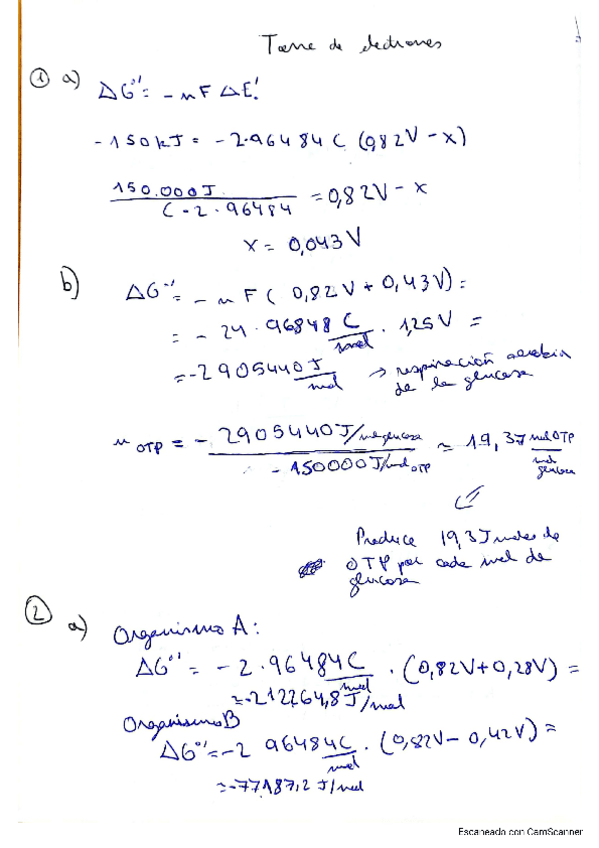 Torre de electrones
① a) ΔG°'= - n F ΔE°'
-150 kJ = -2·96484 C (0,82V - x)
150.000J / (-2·96484 = 0,82V - x
x = 0,043V
b) ΔG°'= - n F ( 0,82V + 0,43V) =
= - 24·96848 C/mol · 1,25V =
= -2905440 J/mol → respiración aerobia
de la glucosa
n OTP = - 2905440J/mol glucosa / -150000J/mol OTP ≈ 19,37 mol OTP / mol glucosa
Produce 19,37 moles de
OTP por cada mol de
glucosa
② a) Organismo A:
ΔG°' = - 2·96484C/mol · (0,82V+0,28V) =
= -212264,8 J/mol
Organismo B
ΔG°'= -2 96484C/mol · (0,82V - 0,42V) =
= -77187,2 J/mol
Escaneado con CamScanner